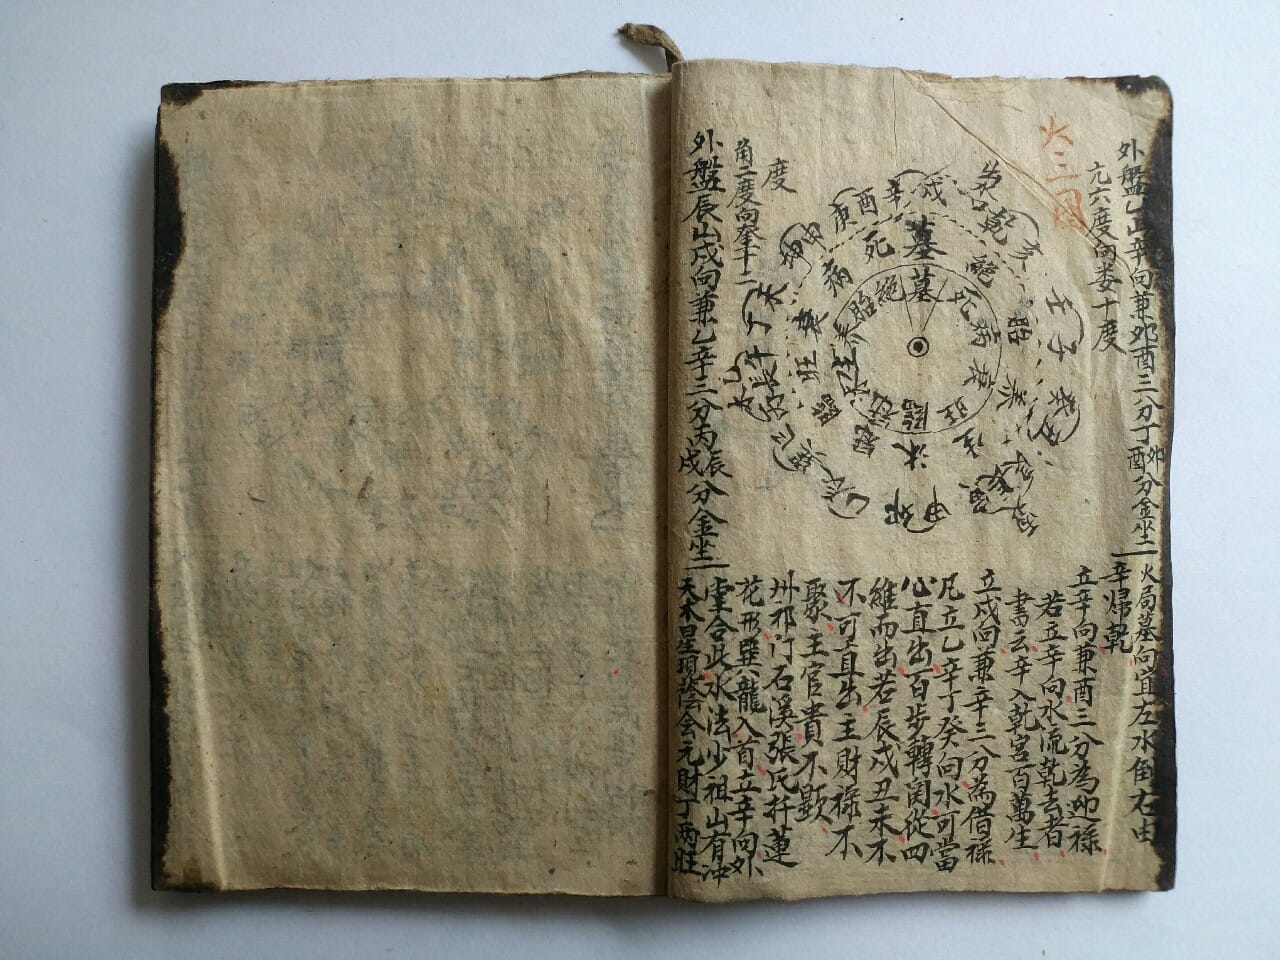 外盤乙山辛向兼卯酉三分丁卯酉分金坐
亢六度向婁十度
火三圖
度
角二度向奎十二
外盤辰山戌向兼乙辛三分丙辰戌分金坐
庚酉辛戌
乾亥
壬子癸
甲卯
未丁午
死墓
病
衰
旺
臨
胎
養
沐
絕墓死病衰旺臨
胎養生
火局墓向宜左水倒右由
辛歸乾
立辛向兼酉三分為迎祿
若立辛向水流乾去者
書云辛入乾宮百萬生
立戌向兼辛三分為借祿
凡立乙辛丁癸向水可當
心直出百步轉関從四
維而出若辰戌丑未不
不可直出主財祿不
聚主官貴不顯
州邪门石溪張氏扦蓮
花形巽龍入首立辛向外
堂合此水法少祖山有沖
天木星現蔭會元財丁两旺